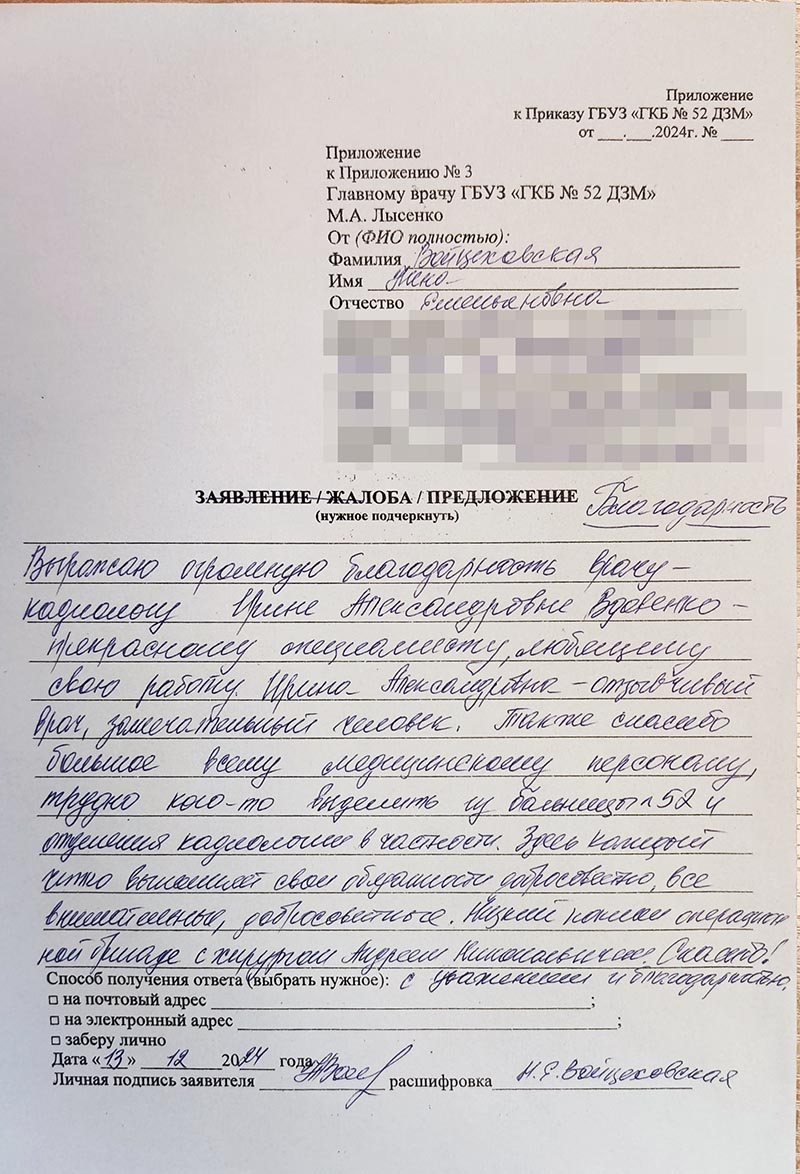 Приложение
к Приказу ГБУЗ «ГКБ № 52 ДЗМ»
от ___.___.2024г. № ____
Приложение
к Приложению № 3
Главному врачу ГБУЗ «ГКБ № 52 ДЗМ»
М.А. Лысенко
От (ФИО полностью):
Фамилия Войцеховская
Имя Нина
Отчество Емельяновна
ЗАЯВЛЕНИЕ / ЖАЛОБА / ПРЕДЛОЖЕНИЕ Благодарность
(нужное подчеркнуть)
Выражаю огромную благодарность врачу-
кадиологу Ирине Александровне Вдовенко –
прекрасному специалисту, любящему
свою работу. Ирина Александровна – отзывчивый
врач, замечательный человек. Также спасибо
большое всему медицинскому персоналу,
трудно кого-то выделить из больницы №52 и
отделения кадиологии в частности. Здесь каждый
четко выполняет свои обязанности добросовестно, все
внимательные, добросовестные. Низкий поклон операцион
ной бригаде с хирургом Андреем Николаевичем. Спасибо!
Способ получения ответа (выбрать нужное): с уважением и благодарностью.
□ на почтовый адрес ;
□ на электронный адрес ;
□ заберу лично
Дата «13» 12 2024 года
Личная подпись заявителя расшифровка Н.Е. Войцеховская